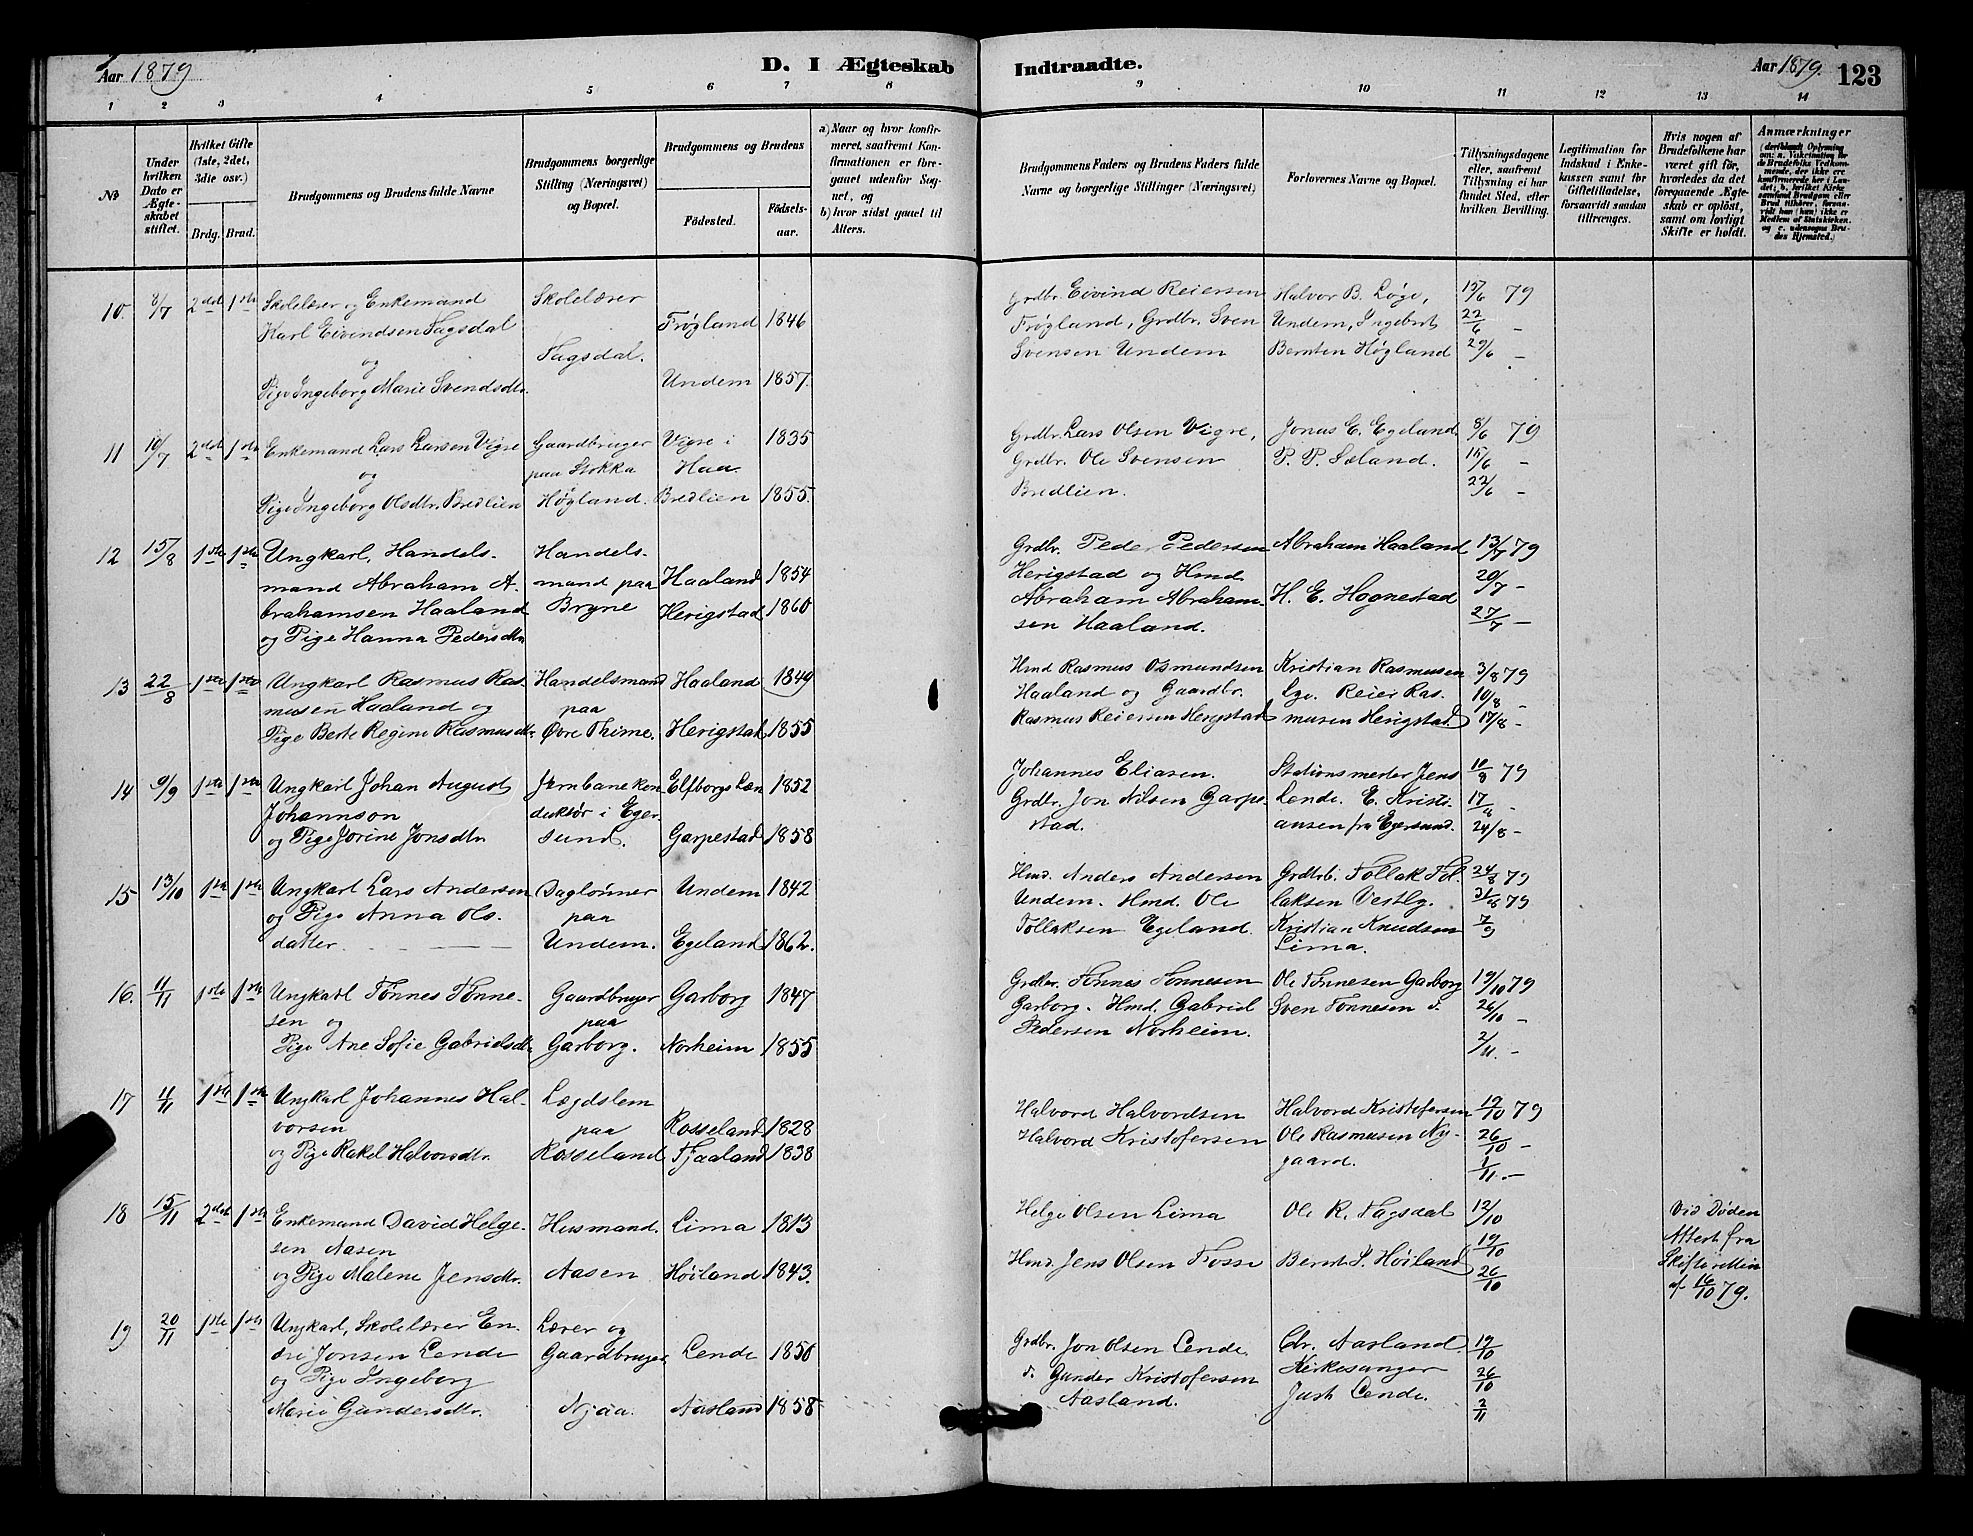 Aar 1879
D. I Ægteskab
Indtraadte.
Aar 1879.
123
1 2 3 4 5 6 7 8 9 10 11 12 13 14
№
Under hvilken Dato er Ægteskabet stiftet.
Hvilket Gifte (1ste, 2det, 3die osv.)
Brdg. Brud.
Brudgommens og Brudens fulde Navne
Brudgommens borgerlige Stilling (Næringsvei) og Bopæl.
Brudgommens og Brudens
Fødested. Fødselsaar.
a) Naar og hvor konfirmeret, saafremt Konfirmationen er foregaaet udenfor Sognet, og
b) hvor sidst gaaet til Alters.
Brudgommens Faders og Brudens Faders fulde Navne og borgerlige Stillinger (Næringsvei)
Forlovernes Navne og Bopæl.
Tillysningsdagene eller, saafremt Tillysning ei har fundet Sted, efter hvilken Bevilling.
Legitimation for Indskud i Enkekassen samt for Giftetilladelse, forsaavidt saadan tiltrænges.
Hvis nogen af Brudefolkene har været gift før, hvorledes da det foregaaende Ægteskab er opløst, samt om lovligt Skifte er holdt.
Anmærkninger
10. 8/7 2det 1ste Skolelærer og Enkemand Skolelærer
Karl Eivindsen Tagsdal Frøgland 1846
og Tagsdal.
Pige Ingeborg Marie Svendsdtr. Undem 1857.
Grdbr. Eivind Reiersen Halvor B. Løge, 15/6 79
Frøgland, Grdbr. Sven Undem, Ingebret 22/6 -
Svensen Undem Berntsen Høgland 29/6 -
11 10/7 2det 1ste Enkemand Lars Larsen Vigre Gaardbruger Vigre i 1835
og paa Stokka Haa.
Pige Ingeborg Olsdtr. Bredlien Høgland. Bredlien 1855.
Grdbr. Lars Olsen Vigre, Jonas E. Egeland 8/6 79
Grdbr. Ole Svensen P. P. Sæland. 15/6 -
Bredlien. 22/6 -
12 15/8 1ste 1ste Ungkarl, Handels- Handels-
mand Abraham A- mand paa Haaland 1854
brahamsen Haaland Bryne Herigstad 1860
og Pige Hanna Pedersdtr
Grdbr. Peder Pedersen Abraham Haaland 13/7 79
Herigstad og Hmd. 20/7 -
Abraham Abraham- H. E. Hognestad
sen Haaland. 27/7 -
13 22/8 1ste 1ste Ungkarl Rasmus Ras- Handelsmand Haaland 1849
musen Haaland og paa
Pige Berte Regine Rasmusdtr. Øvre Thime. Herigstad 1855
Hmd Rasmus Osmundsen Kristian Rasmussen 3/8 79
Haaland og Gaardbr. Reier Ras- 10/8 -
Rasmus Reiersen Herigstad musen Herigstad 17/8 -
14 9/9 1ste 1ste Ungkarl Johan August Jernbanekon- Elfborgs Læn 1852
Johannson duktør i Eger-
og Pige Jorine Jonsdtr sund. Garpestad 1858
Johannes Eliasen. Stationsmester Jens 10/8 79
Grdbr. Jon Nilsen Garpe- Lende. E. Kristi- 17/8 -
stad. ansen fra Egersund. 24/8 -
15 13/10 1ste 1ste Ungkarl Lars Andersen Daglønner Undem 1842
og Pige Anna Ols- paa
datter. Undem. Egeland 1862.
Hmd. Anders Andersen Grdbr. Tollak Tol- 24/8 79
Undem. Hmd. Ole laksen Vestly. 31/8 79
Tollaksen Egeland. Kristian Knudsen 7/9
Lima.
16. 11/11 1ste 1ste Ungkarl Tønnes Tønne- Gaardbruger Garborg 1847
sen og paa
Pige Ane Sofie Gabrielsdtr Garborg. Norheim 1855
Grdbr. Tønnes Tønnesen Ole Tønnesen Garborg 19/10 79
Garborg. Hmd. Gabriel Sven Tønnesen 26/10 -
Pedersen Norheim. 2/11 -
17 11/11 1ste 1ste Ungkarl Johannes Hal- Lægdslem
vorsen paa Rosseland 1828
og Pige Rakel Halvorsdtr. Rosseland Fjaaland 1838
Halvord Halvordsen Halvord Kristofersen 12/10 79
Halvord Kristofersen Ole Rasmusen Ny- 26/10 -
gaard. 1/11 -
18 15/11 2det 1ste Enkemand David Helge- Husmand. Lima 1813
sen Aasen
og Pige Malene Jensdtr. Aasen Høiland 1843.
Helge Olsen Lima Ole R. Tagsdal 12/10 Ved Døden
19/10 Attest fra
Hmd. Jens Olsen Fosse Bernt S. Høiland 26/10 Skifteretten
af 16/10 79.
19 20/11 1ste 1ste Ungkarl, Skolelærer En- Lærer og
dre Jonsen Lende Gaardbruger Lende 1850
og Pige Ingeborg
Marie Gundersdtr. Njaa. Aasland 1858
Grdbr. Jon Olsen Lende Chr. Aasland. 12/10
Gunder Kristofersen Kirkesanger 26/10
Aasland. Just Lende. 2/11